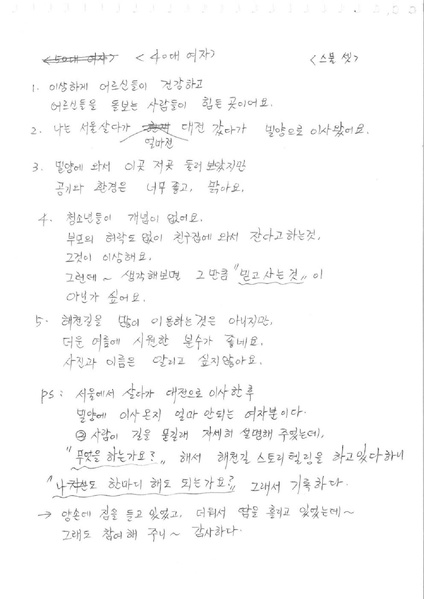 <50대 여자> <40대 여자> <스물 셋>
1. 이상하게 어르신들이 건강하고
어르신들을 돌보는 사람들이 힘든 곳이어요.
2. 나는 서울 살다가 대전 갔다가 밀양으로 이사왔어요.
얼마전
3. 밀양에 와서 이곳 저곳 둘러 보았지만
공기와 환경은 너무 좋고, 맑아요.
4. 청소년들이 개념이 없어요.
부모의 허락도 없이 친구집에 와서 잔다고 하는것,
그것이 이상해요.
그런데~ 생각해보면 그만큼 "믿고 사는 것"이
아닌가 싶어요.
5. 해천길을 많이 이용하는 것은 아니지만,
더운 여름에 시원한 분수가 좋네요.
사진과 이름은 알리고 싶지않아요.
PS: 서울에서 살다가 대전으로 이사한 후
밀양에 이사온지 얼마 안되는 여자분이다.
사람이 길을 물길래 자세히 설명해 주었는데,
"무엇을 하는가요?" 해서 해천길 스토리텔링을 하고있다하니
"나도 한마디 해도 되는가요?" 그래서 기록하다.
→ 양손에 짐을 들고 있었고, 더워서 땀을 흘리고 있었는데~
그래도 참여해 주니~ 감사하다.